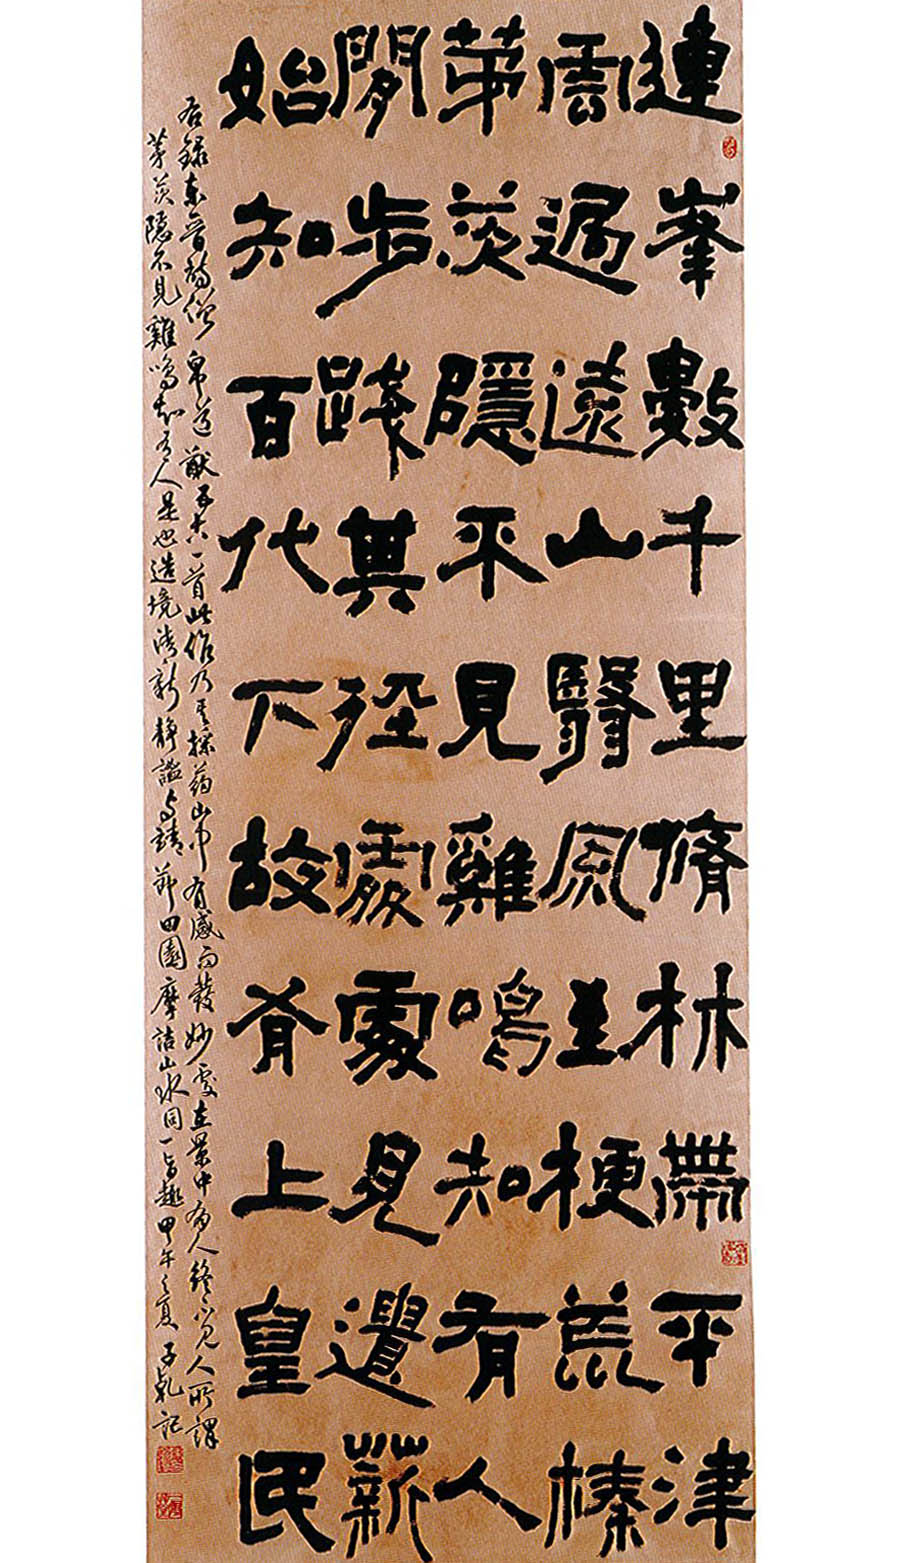 連峯數千里脩林帶平津
雲過遠山翳風至梗荒榛
茅茨隱不見雞鳴知有人
閒步踐其徑處處見遺薪
始知百代下故有上皇民
右録東晉詩僧帛道猷五古一首此作乃其採葯山中有感而發妙處在景中有人終不見人所謂
茅茨隱不見雞鳴知有人是也造境清新靜謐与靖節田園摩詰山水同一旨趣甲午之夏子乹記